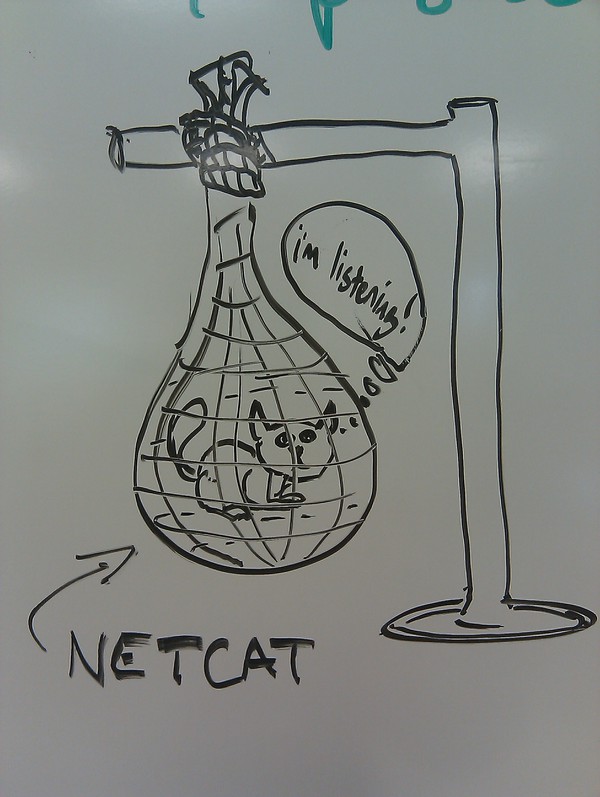 i'm listening!
NETCAT